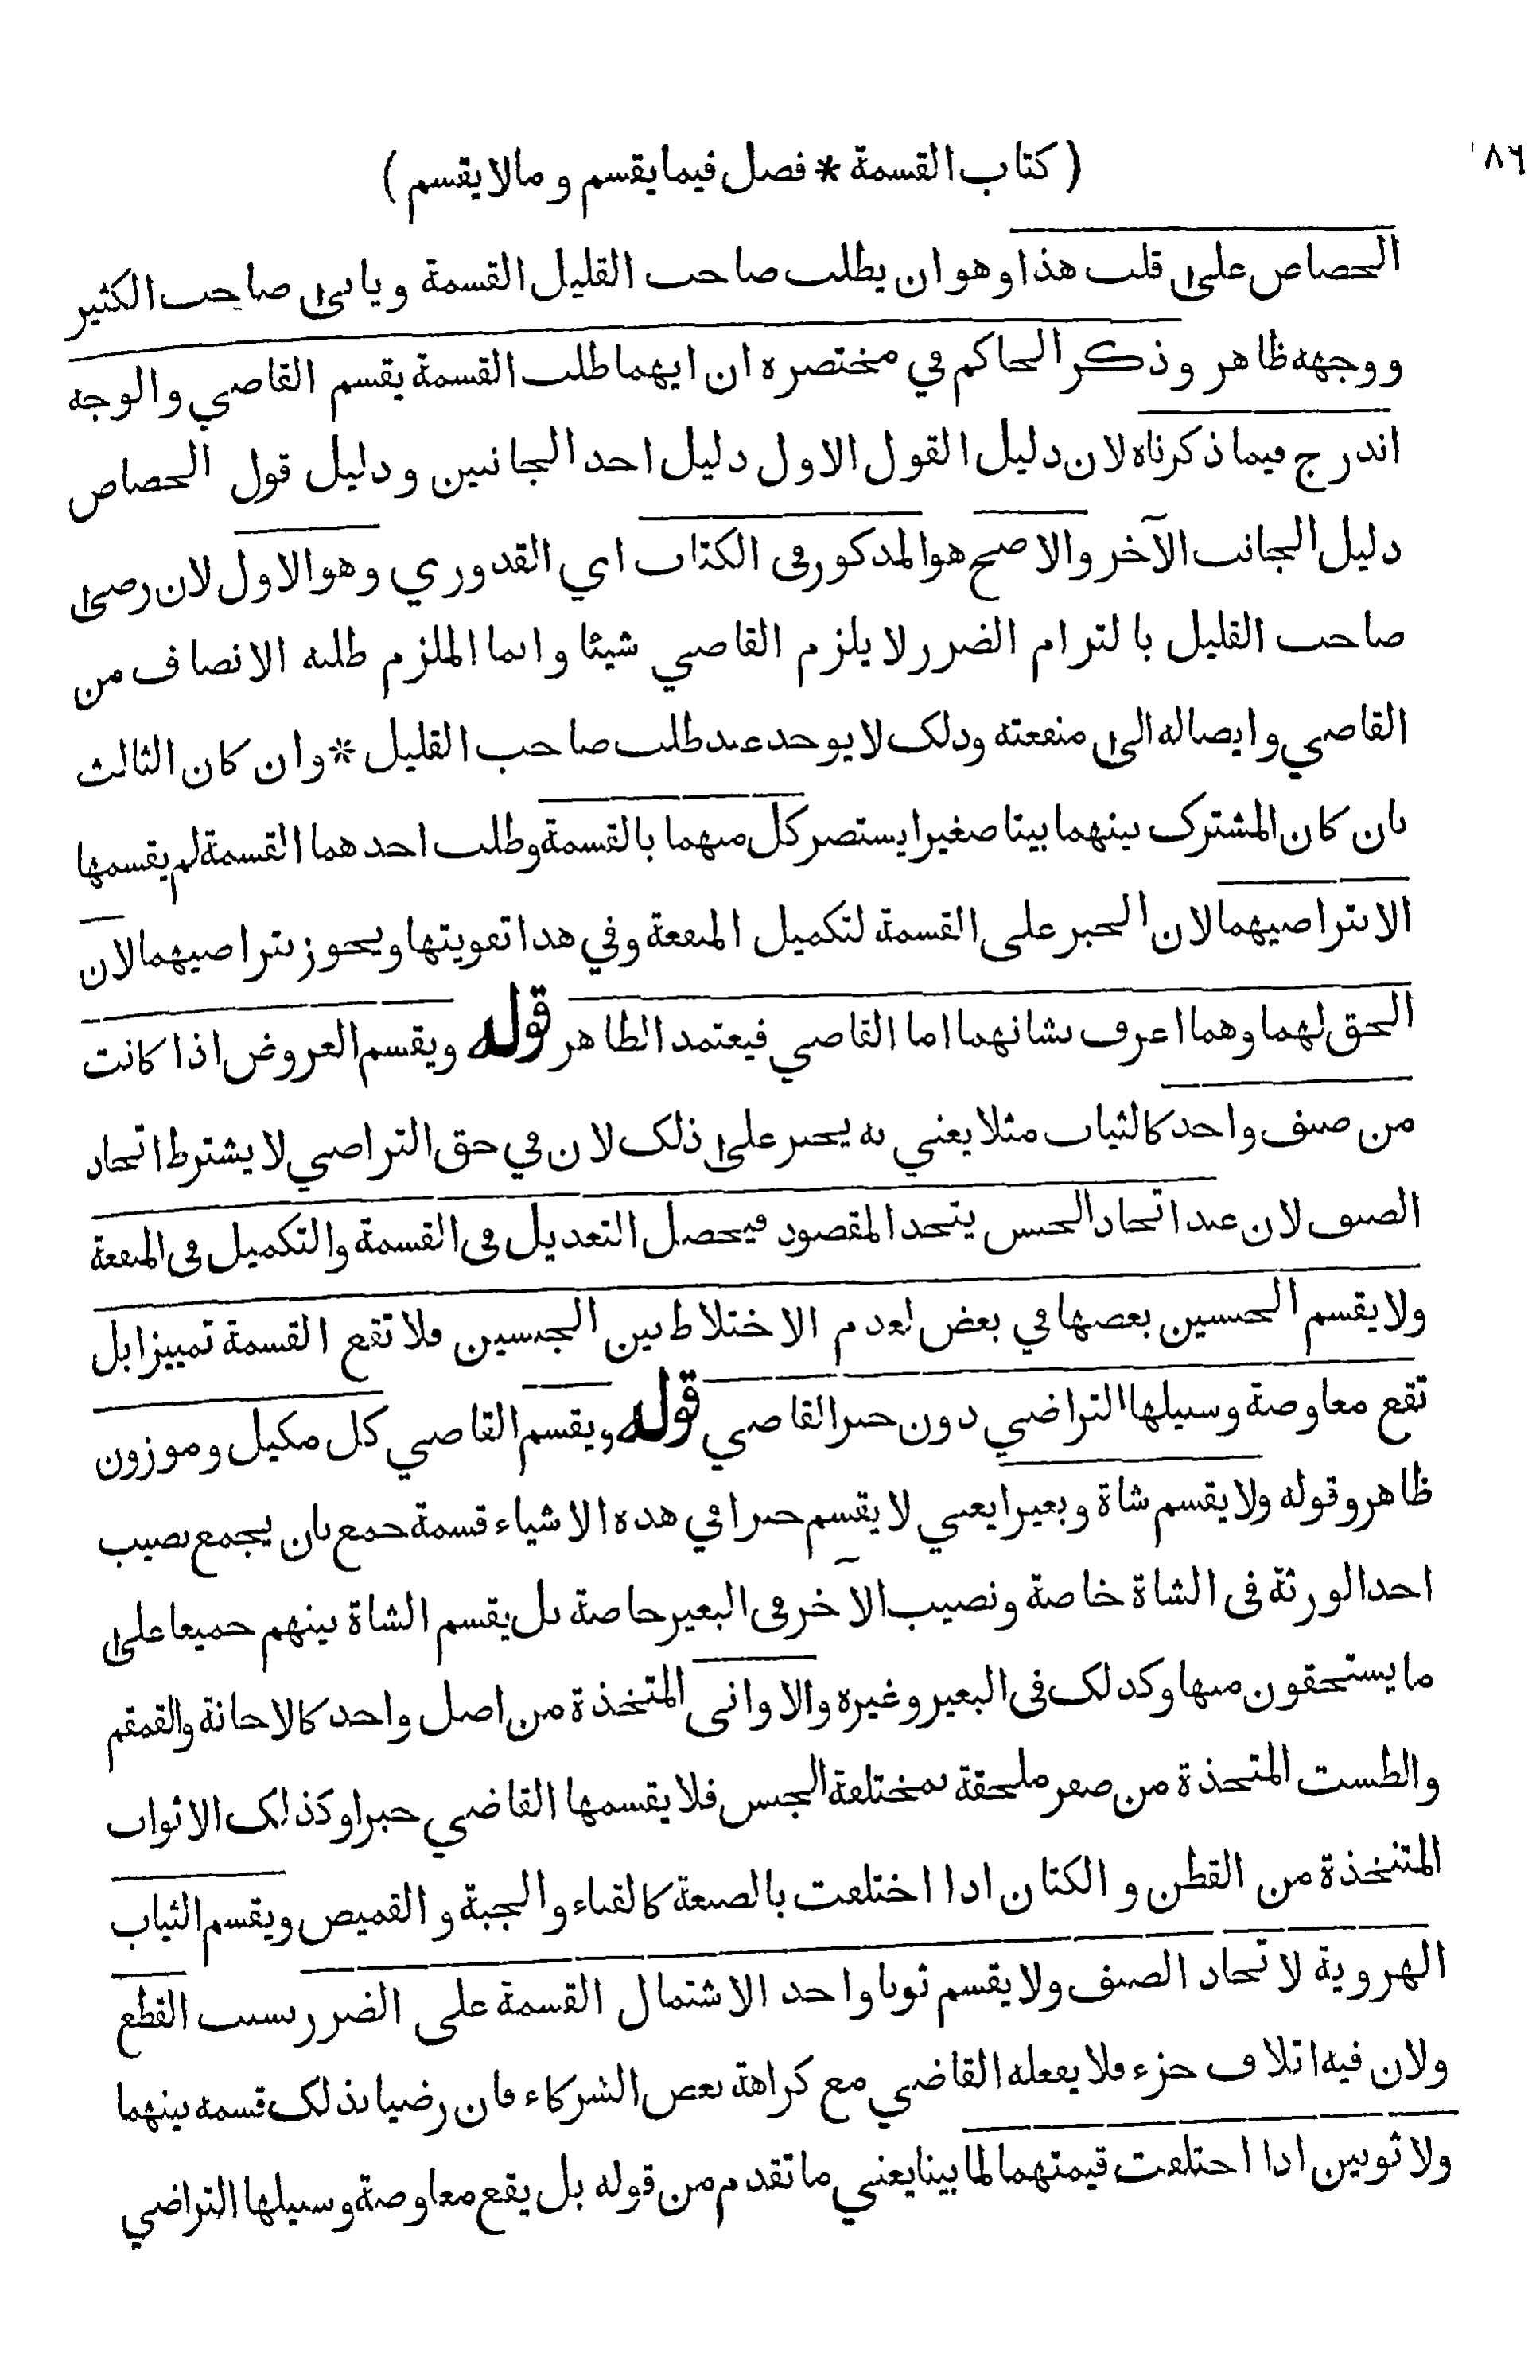 ٨٦
( كتاب القسمة * فصل فيما يقسم و مالا يقسم )
الجصاص على قلب هذا وهو ان يطلب صاحب القليل القسمة ويابى صاحب الكثير
ووجهه ظاهر وذكر الحاكم في مختصره ان ايهما طلب القسمة يقسم القاضي والوجه
اندرج فيما ذكرناه لان دليل القول الاول دليل احد الجانبين ودليل قول الجصاص
دليل الجانب الآخر والاصح هو المذكور في الكتاب اي القدوري وهو الاول لان رضى
صاحب القليل بالتزام الضرر لا يلزم القاضي شيئا وانما الملزم طلبه الانصاف من
القاضي وايصاله الى منفعته وذلك لا يوجد عند طلب صاحب القليل * وان كان الثالث
بان كان المشترك بينهما بيتا صغيرا يستضر كل منهما بالقسمة وطلب احدهما القسمة لم يقسمها
الا بتراضيهما لان الجبر على القسمة لتكميل المنفعة وفي هذا تفويتها ويجوز بتراضيهما لان
الحق لهما وهما اعرف بشانهما اما القاضي فيعتمد الظاهر قوله ويقسم العروض اذا كانت
من صنف واحد كالثياب مثلا يعني به يجبر على ذلك لان في حق التراضي لا يشترط اتحاد
الصنف لان عند اتحاد الجنس يتحد المقصود فيحصل التعديل في القسمة والتكميل في المنفعة
ولا يقسم الجنسين بعضها في بعض لعدم الاختلاط بين الجنسين فلا تقع القسمة تمييزا بل
تقع معاوضة وسبيلها التراضي دون جبر القاضي قوله ويقسم القاضي كل مكيل وموزون
ظاهر وقوله ولا يقسم شاة وبعيرا يعني لا يقسم جبرا في هذه الاشياء قسمة جمع بان يجمع نصيب
احد الورثة في الشاة خاصة ونصيب الآخر في البعير خاصة بل يقسم الشاة بينهم جميعا على
ما يستحقون منها وكذلك في البعير وغيره والاواني المتخذة من اصل واحد كالاجانة والقمقم
والطست المتخذة من صفر ملحقة بمختلفة الجنس فلا يقسمها القاضي جبرا وكذلك الاثواب
المتخذة من القطن و الكتان اذا اختلفت بالصنعة كالقباء والجبة و القميص ويقسم الثياب
الهروية لاتحاد الصنف ولا يقسم ثوبا واحد الاشتمال القسمة على الضرر بسبب القطع
ولان فيه اتلاف جزء فلا يفعله القاضي مع كراهة بعض الشركاء فان رضيا بذلك قسمه بينهما
ولا ثوبين اذا اختلفت قيمتهما لما بينا يعني ما تقدم من قوله بل يقع معاوضة وسبيلها التراضي